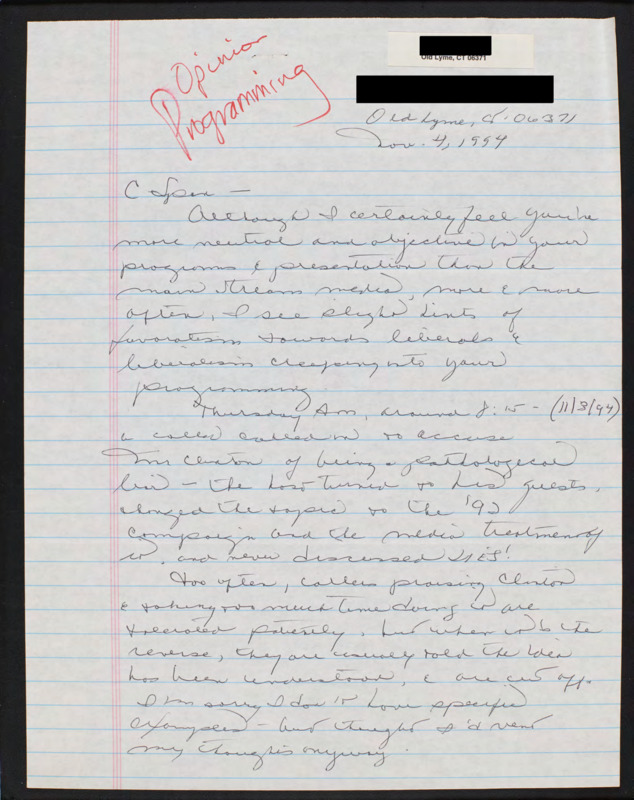 Opinion
Programming
Old Lyme, CT 06371
Old Lyme, Ct. 06371
Nov. 4, 1994
C Span —
Although I certainly feel you're
more neutral and objective in your
programs & presentation than the
main stream media, more & more
often, I see slight hints of
favoratism towards liberals &
liberalism creeping into your
programming.
Thursday Am, around 8:15 - (11/3/94)
a caller called in to accuse
Mr Clinton of being a pathological
liar - the host turned to his guests,
changed the topic to the '92
campaign and the media treatment of
it, and never discussed LIES!
Too often, callers praising Clinton
& taking too much time doing it are
tolerated patiently, but when it's the
reverse, they are usually told the idea
has been understood, & are cut off.
I'm sorry I don't have specific
examples - but thought I'd vent
my thoughts anyway.